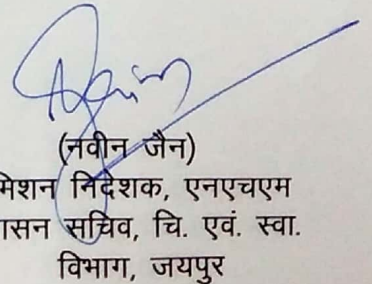 (नवीन जैन)
मिशन निदेशक, एनएचएम
सन सचिव, चि. एवं. स्वा.
विभाग, जयपुर